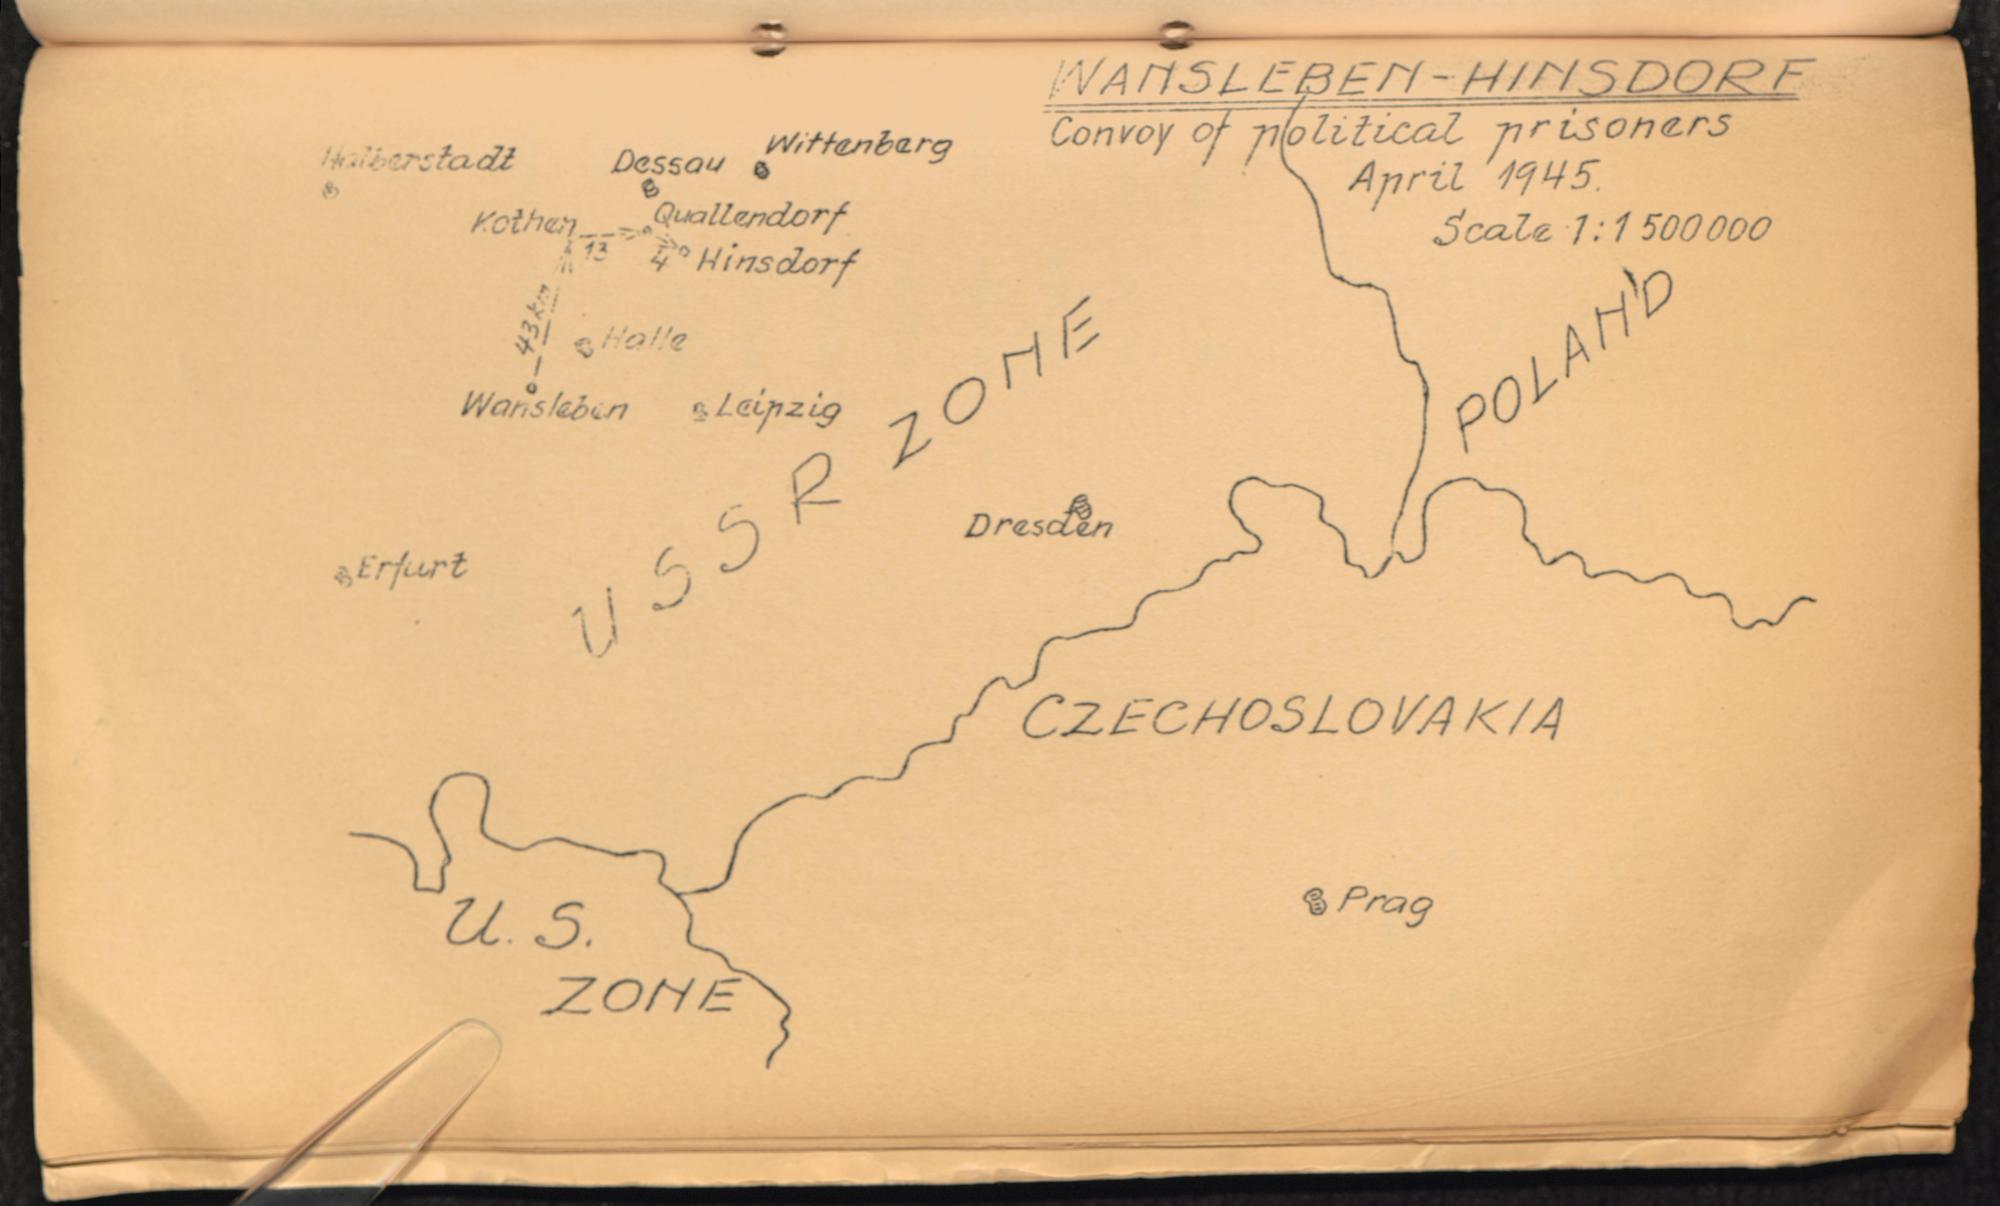 WANSLEBEN-HINSDORF
Convoy of political prisoners
April 1945.
Scale 1:1 500 000
Halberstadt
Dessau
Wittenberg
Kothen
Quallendorf
13
4
Hinsdorf
43 km
Halle
Wansleben
Leipzig
USSR ZONE
POLAND
Dresden
Erfurt
CZECHOSLOVAKIA
U.S.
ZONE
Prag